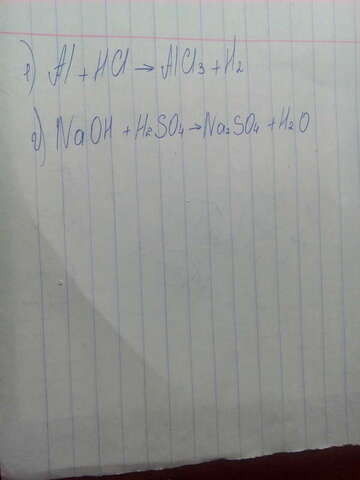 1) Al + HCl → AlCl₃ + H₂
2) NaOH + H₂SO₄ → Na₂SO₄ + H₂O